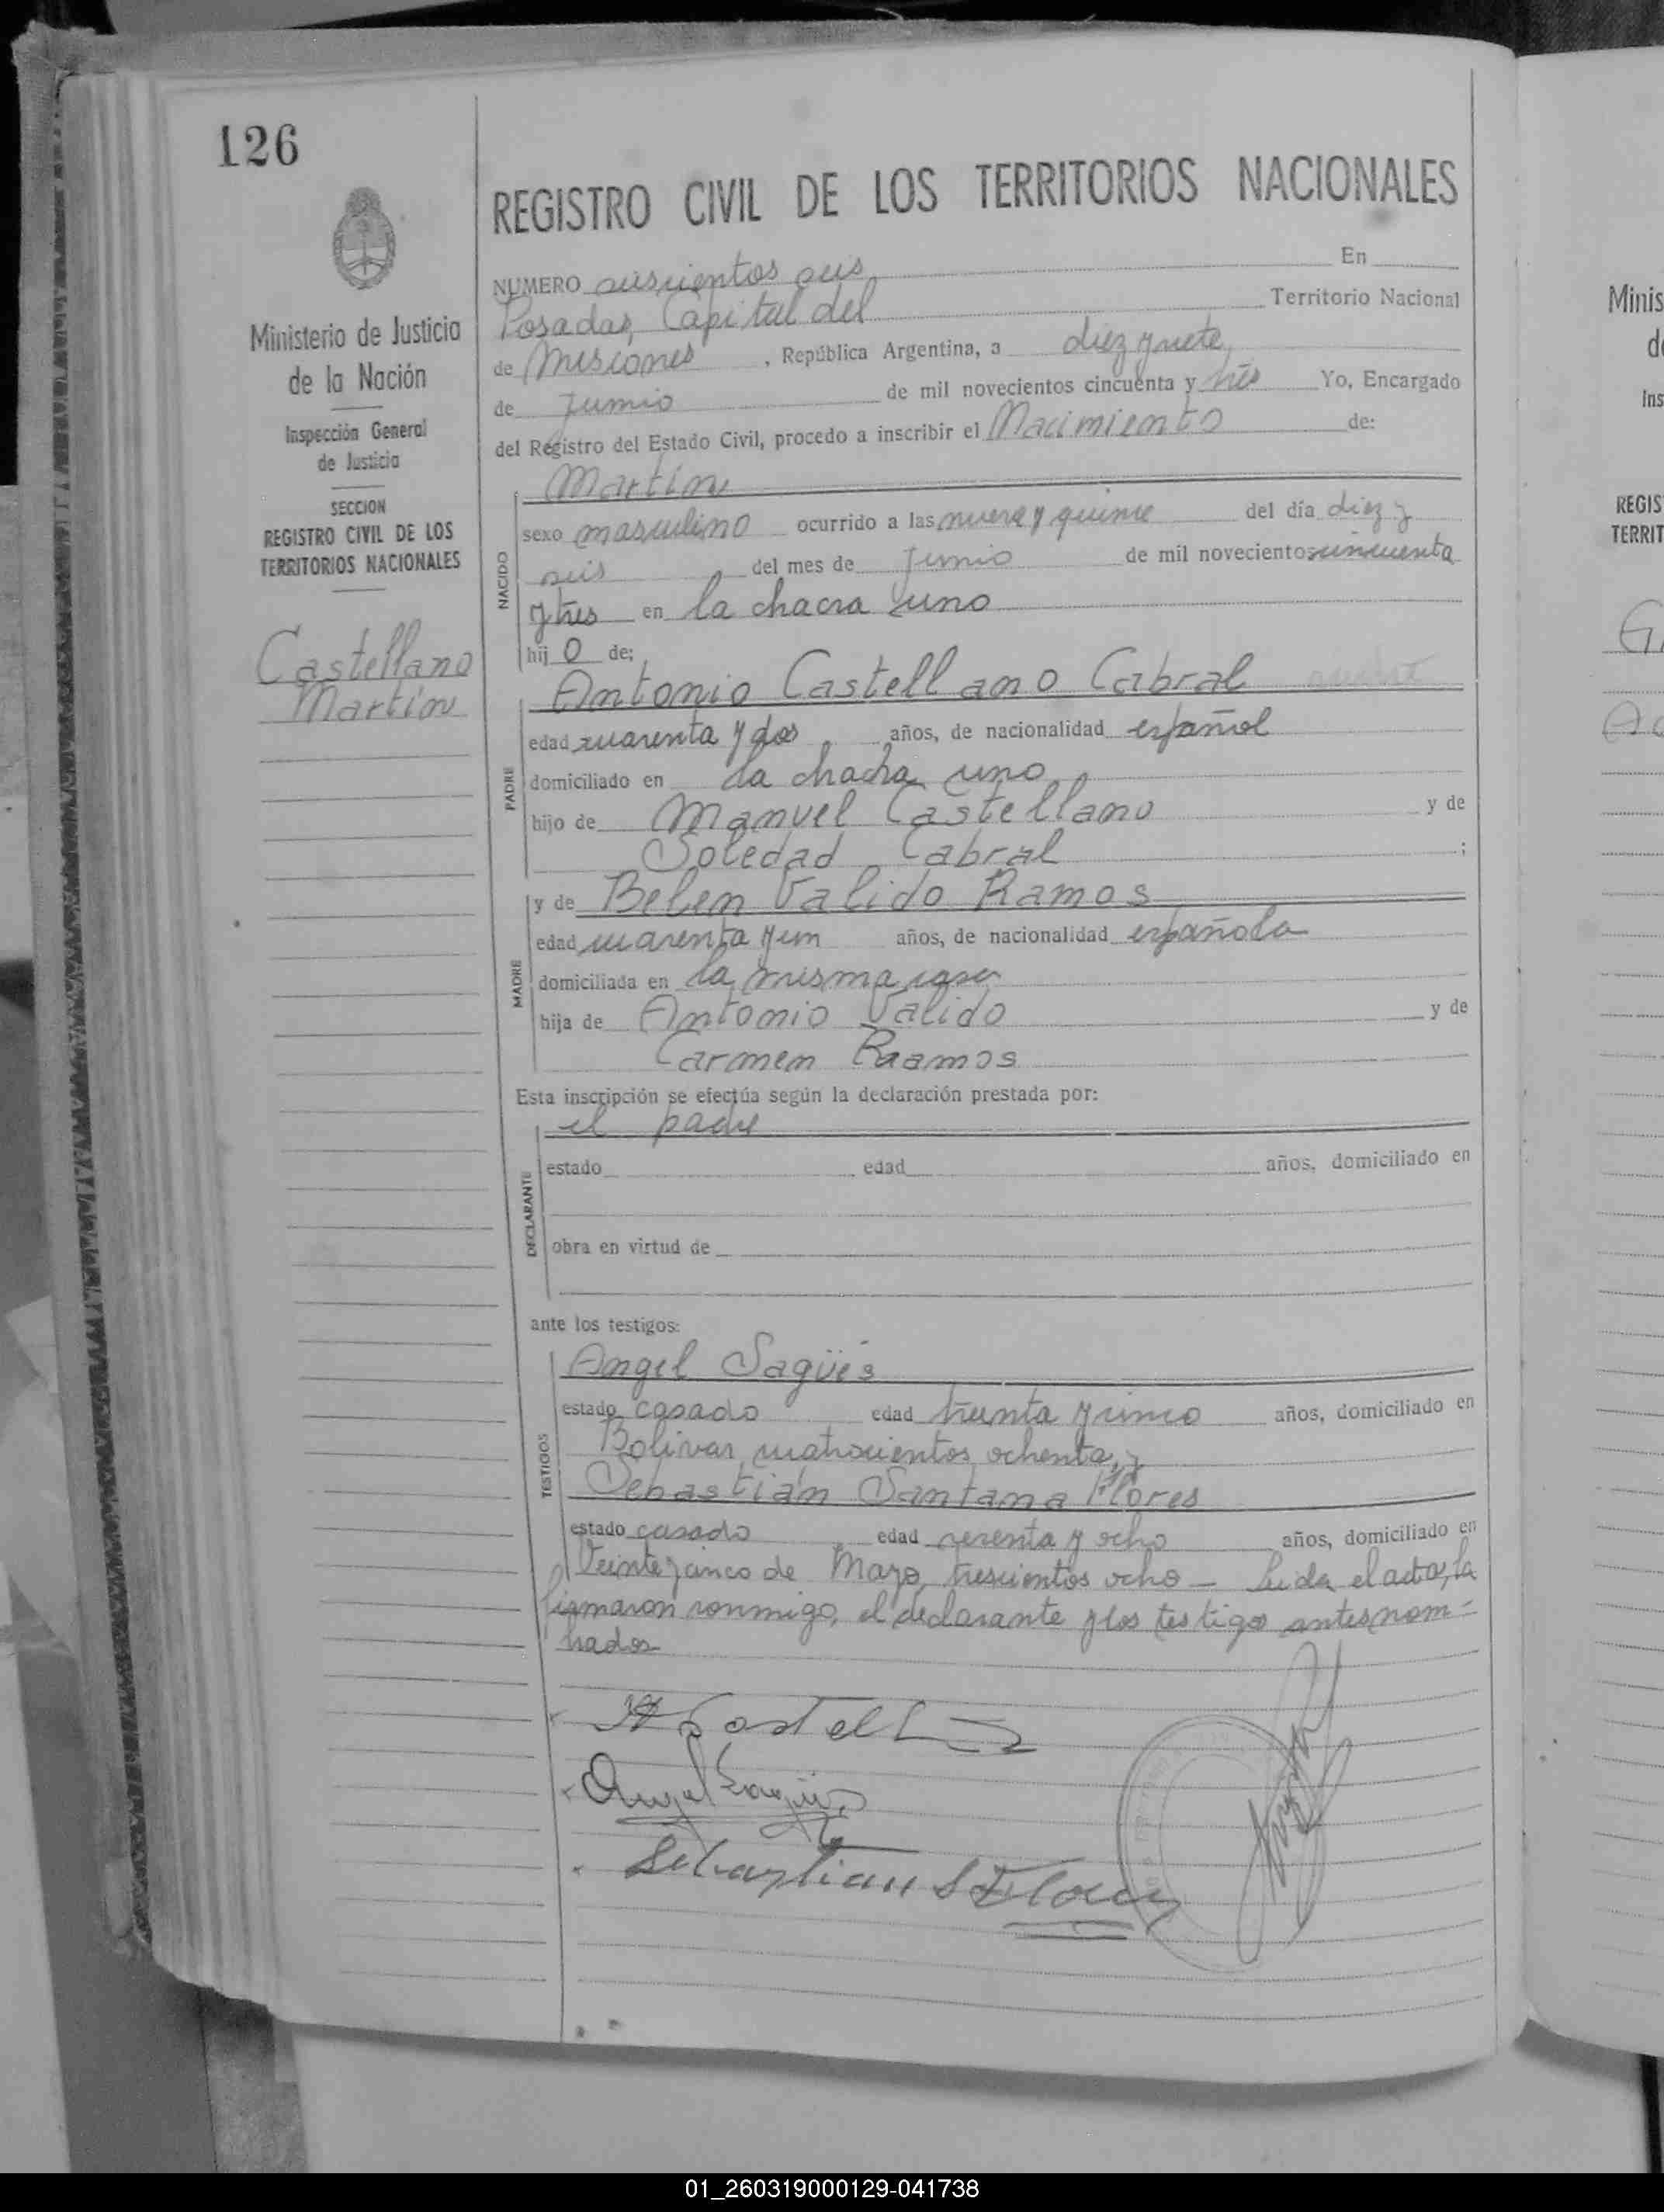 126
REGISTRO CIVIL DE LOS TERRITORIOS NACIONALES
Ministerio de Justicia
de la Nación
Inspección General
de Justicia
SECCION
REGISTRO CIVIL DE LOS
TERRITORIOS NACIONALES
Castellano
Martín
NUMERO seiscientos seis En
Posadas, Capital del Territorio Nacional
de Misiones, República Argentina, a diez y siete
de junio de mil novecientos cincuenta y trés Yo, Encargado
del Registro del Estado Civil, procedo a inscribir el Nacimiento de:
NACIDO
Martín
sexo masculino ocurrido a las nueve y quince del día diez y
seis del mes de junio de mil novecientos cincuenta
y tres en la chacra uno
hij o de:
PADRE
Antonio Castellano Cabral
edad cuarenta y dos años, de nacionalidad español
domiciliado en la chacra uno
hijo de Manuel Castellano y de
Soledad Cabral ;
MADRE
y de Belen Valido Ramos
edad cuarenta y un años, de nacionalidad española
domiciliada en la misma casa
hija de Antonio Valido y de
Carmen Ramos
Esta inscripción se efectúa según la declaración prestada por:
DECLARANTE
el padre
estado edad años, domiciliado en
obra en virtud de
ante los testigos:
TESTIGOS
Angel Sagüés
estado casado edad treinta y cinco años, domiciliado en
Bolivar cuatrocientos ochenta, y
Sebastián Santana Flores
estado casado edad sesenta y ocho años, domiciliado en
Veinte y cinco de Mayo trescientos ocho - Leida el acta, la
firmaron conmigo, el declarante y los testigos antes nom-
brados
A Castell
Angel Sagüés
Sebastian S Flores
Minis
d
Ins
REGIS
TERRIT
01_260319000129-041738